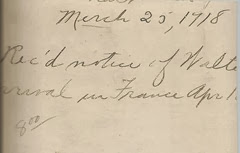 March 25, 1918
Rec'd notice of Walte
rrival in France Apr 1
8 00